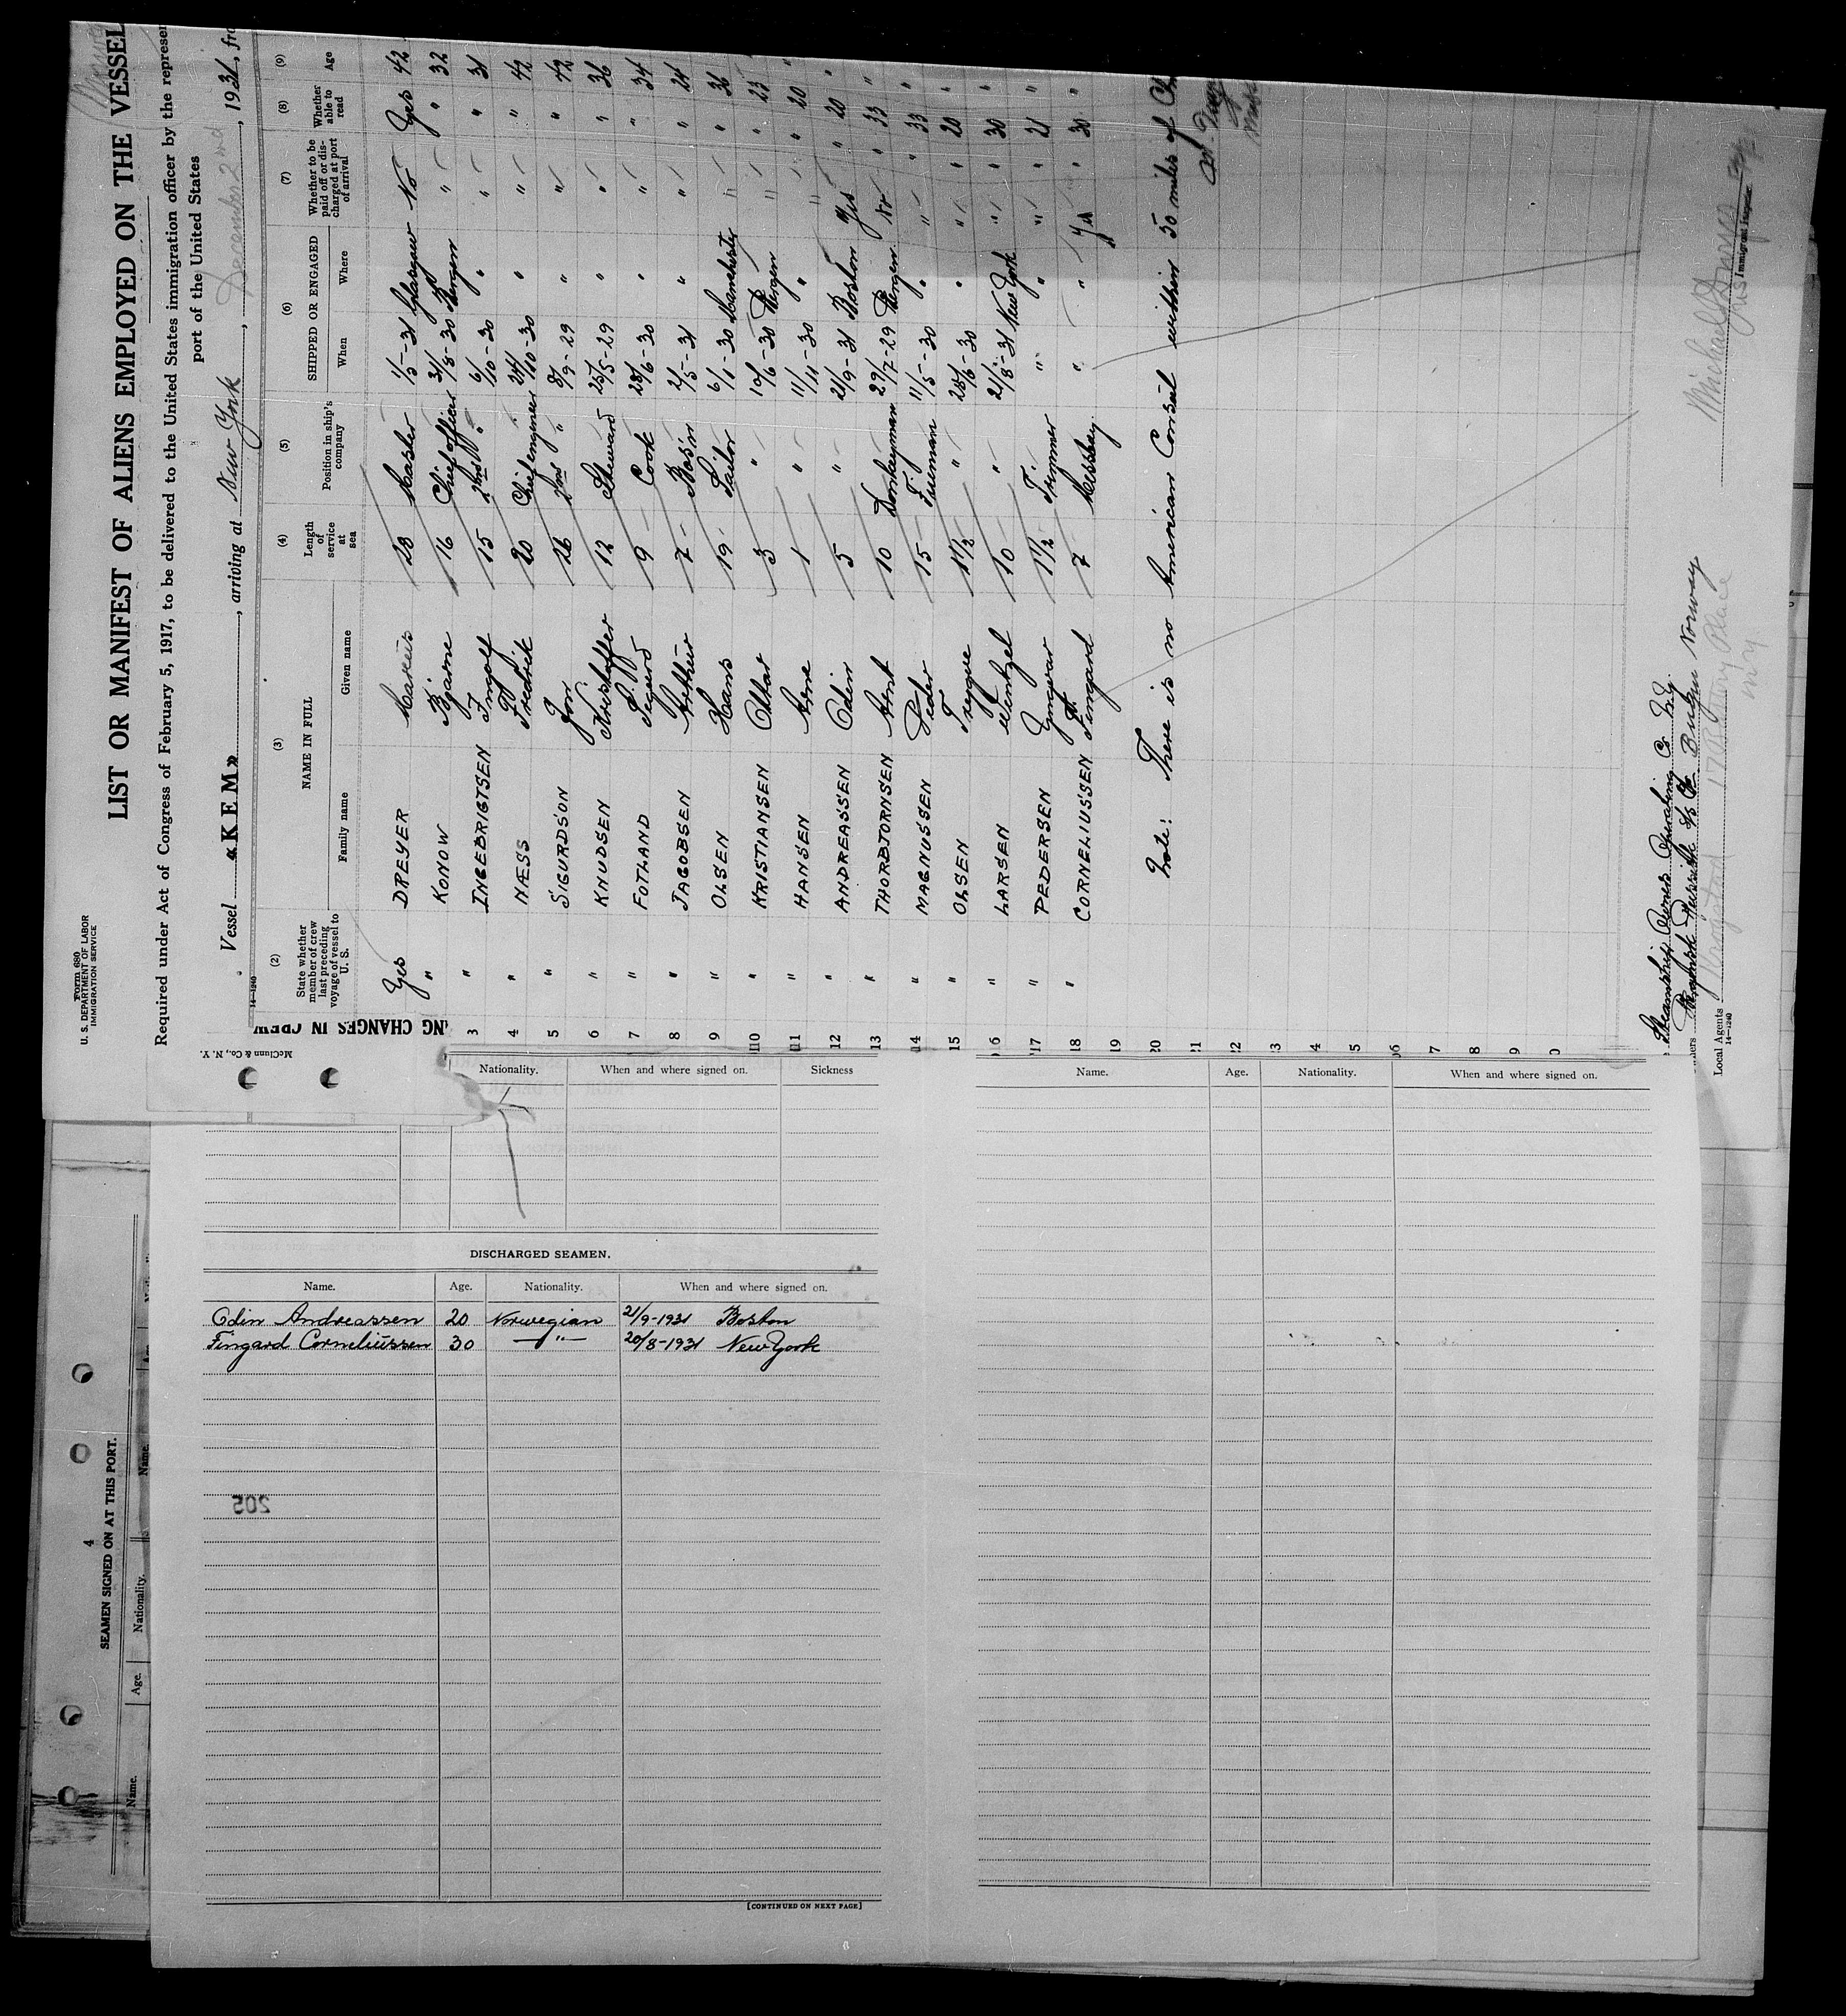 Form 680
U. S. DEPARTMENT OF LABOR
IMMIGRATION SERVICE
LIST OR MANIFEST OF ALIENS EMPLOYED ON THE VESSEL
Required under Act of Congress of February 5, 1917, to be delivered to the United States immigration officer by the represen
port of the United States
Vessel «KEM», arriving at New York, December 2nd, 1931, fro
14—1240
(2) (3) (4) (5) (6) (7) (8) (9)
State whether member of crew last preceding voyage of vessel to U. S.
NAME IN FULL
Family name Given name
Length of service at sea
Position in ship's company
SHIPPED OR ENGAGED
When Where
Whether to be paid off or discharged at port of arrival
Whether able to read
Age
Yes DREYER Marius 28 Master 1/5-31 Glasgow No Yes 42
" KONOW Bjarne 16 Chief officer 31/8-30 Bergen " " 32
3 " INGEBRIGTSEN Ingolf 15 2nd " 6/10-30 " " " 31
4 " NÆSS Fredrik 20 Chief engineer 24/10-30 " " " 42
5 " SIGURDSON Jon 26 2nd " 8/9-29 " " " 42
6 " KNUDSEN Kristoffer 12 Steward 25/5-29 " " " 36
7 " FOTLAND Sigurd 9 Cook 28/6-30 " " " 34
8 " JACOBSEN Arthur 7 Bos'n 2/5-31 " " " 24
9 " OLSEN Hans 19 Sailor 6/1-30 Manchester " " 36
10 " KRISTIANSEN Ottar 3 " 10/6-30 Bergen " " 23
11 " HANSEN Arne 1 " 11/11-30 " " " 20
12 " ANDREASSEN Odin 5 " 21/9-31 Boston Yes " 20
13 " THORBJORNSEN Arnt 10 Donkeyman 29/7-29 Bergen No " 33
14 " MAGNUSSEN Peder 15 Fireman 11/5-30 " " " 33
15 " OLSEN Trygve 1 1/2 " 28/6-30 " " " 20
16 " LARSEN Wentzel 10 " 21/8-31 New York " " 30
17 " PEDERSEN Ingvar 1 1/2 Trimmer " " " " 21
18 " CORNELIUSSEN Fingard 7 Messboy " " Yes " 30
19
20 Note: There is no American Consul within 50 miles of
21
22
3
4
5
6
7
8
9
0
Bergen Norway
Local Agents
17 Battery Place
N.Y.
14—1240
Immigrant Inspector
NG CHANGES IN CREW
McClunn & Co., N. Y.
Nationality. When and where signed on. Sickness
DISCHARGED SEAMEN.
Name. Age. Nationality. When and where signed on.
Odin Andreassen 20 Norwegian 21/9-1931 Boston
Fingard Corneliussen 30 —"— 20/8-1931 New York
205
[CONTINUED ON NEXT PAGE]
Name. Age. Nationality. When and where signed on.
4
SEAMEN SIGNED ON AT THIS PORT.
Name. Age. Nationality.
Name.